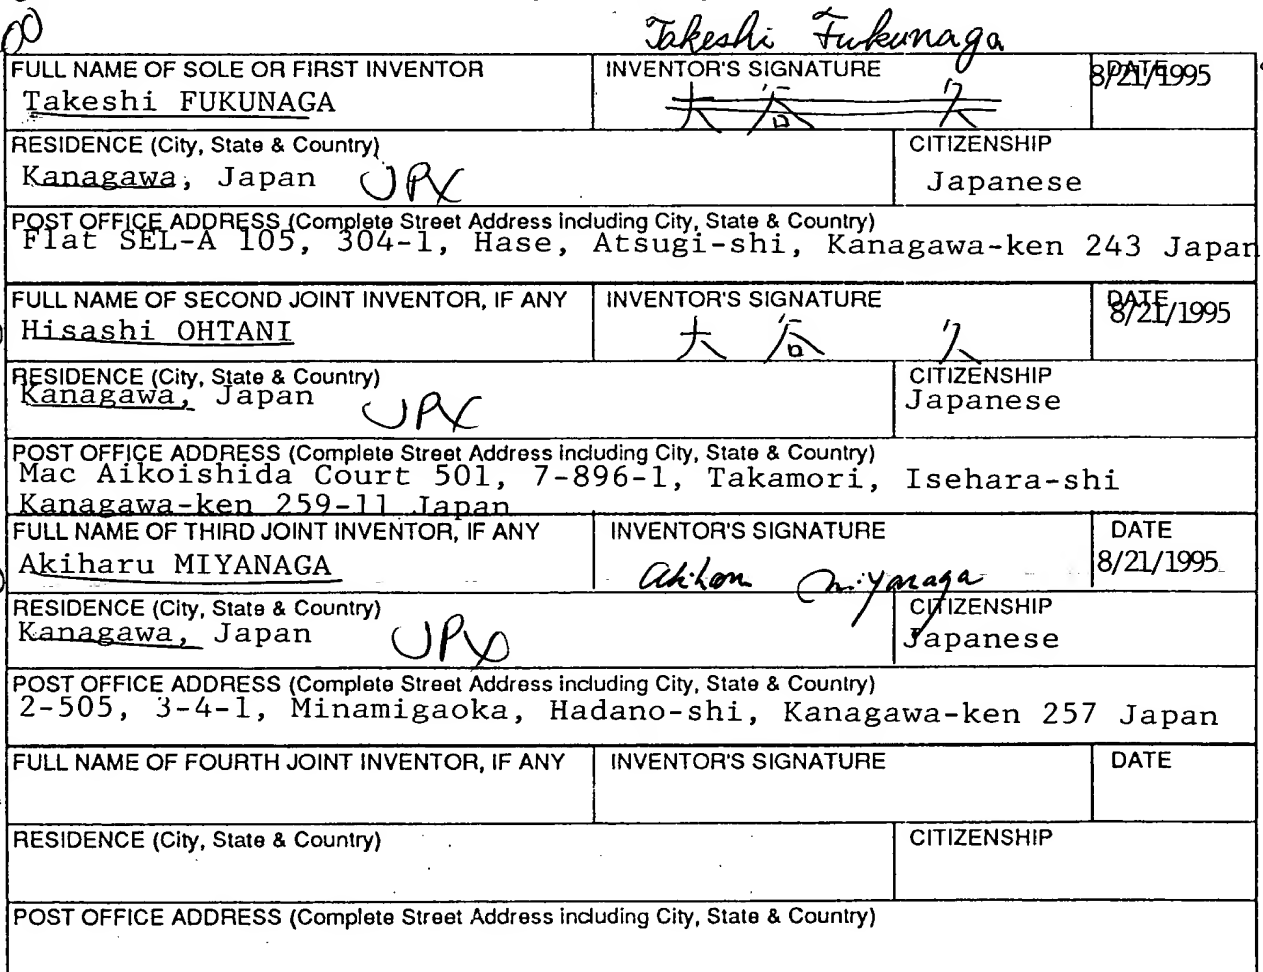 00
Takeshi Fukunaga
FULL NAME OF SOLE OR FIRST INVENTOR INVENTOR'S SIGNATURE DATE
Takeshi FUKUNAGA 大谷 久 8/21/1995
RESIDENCE (City, State & Country) CITIZENSHIP
Kanagawa, Japan JPX Japanese
POST OFFICE ADDRESS (Complete Street Address including City, State & Country)
Flat SEL-A 105, 304-1, Hase, Atsugi-shi, Kanagawa-ken 243 Japan
FULL NAME OF SECOND JOINT INVENTOR, IF ANY INVENTOR'S SIGNATURE DATE
Hisashi OHTANI 大谷 久 8/21/1995
RESIDENCE (City, State & Country) CITIZENSHIP
Kanagawa, Japan JPX Japanese
POST OFFICE ADDRESS (Complete Street Address including City, State & Country)
Mac Aikoishida Court 501, 7-896-1, Takamori, Isehara-shi
Kanagawa-ken 259-11 Japan
FULL NAME OF THIRD JOINT INVENTOR, IF ANY INVENTOR'S SIGNATURE DATE
Akiharu MIYANAGA Akiharu Miyanaga 8/21/1995
RESIDENCE (City, State & Country) CITIZENSHIP
Kanagawa, Japan JPX Japanese
POST OFFICE ADDRESS (Complete Street Address including City, State & Country)
2-505, 3-4-1, Minamigaoka, Hadano-shi, Kanagawa-ken 257 Japan
FULL NAME OF FOURTH JOINT INVENTOR, IF ANY INVENTOR'S SIGNATURE DATE
RESIDENCE (City, State & Country) CITIZENSHIP
POST OFFICE ADDRESS (Complete Street Address including City, State & Country)